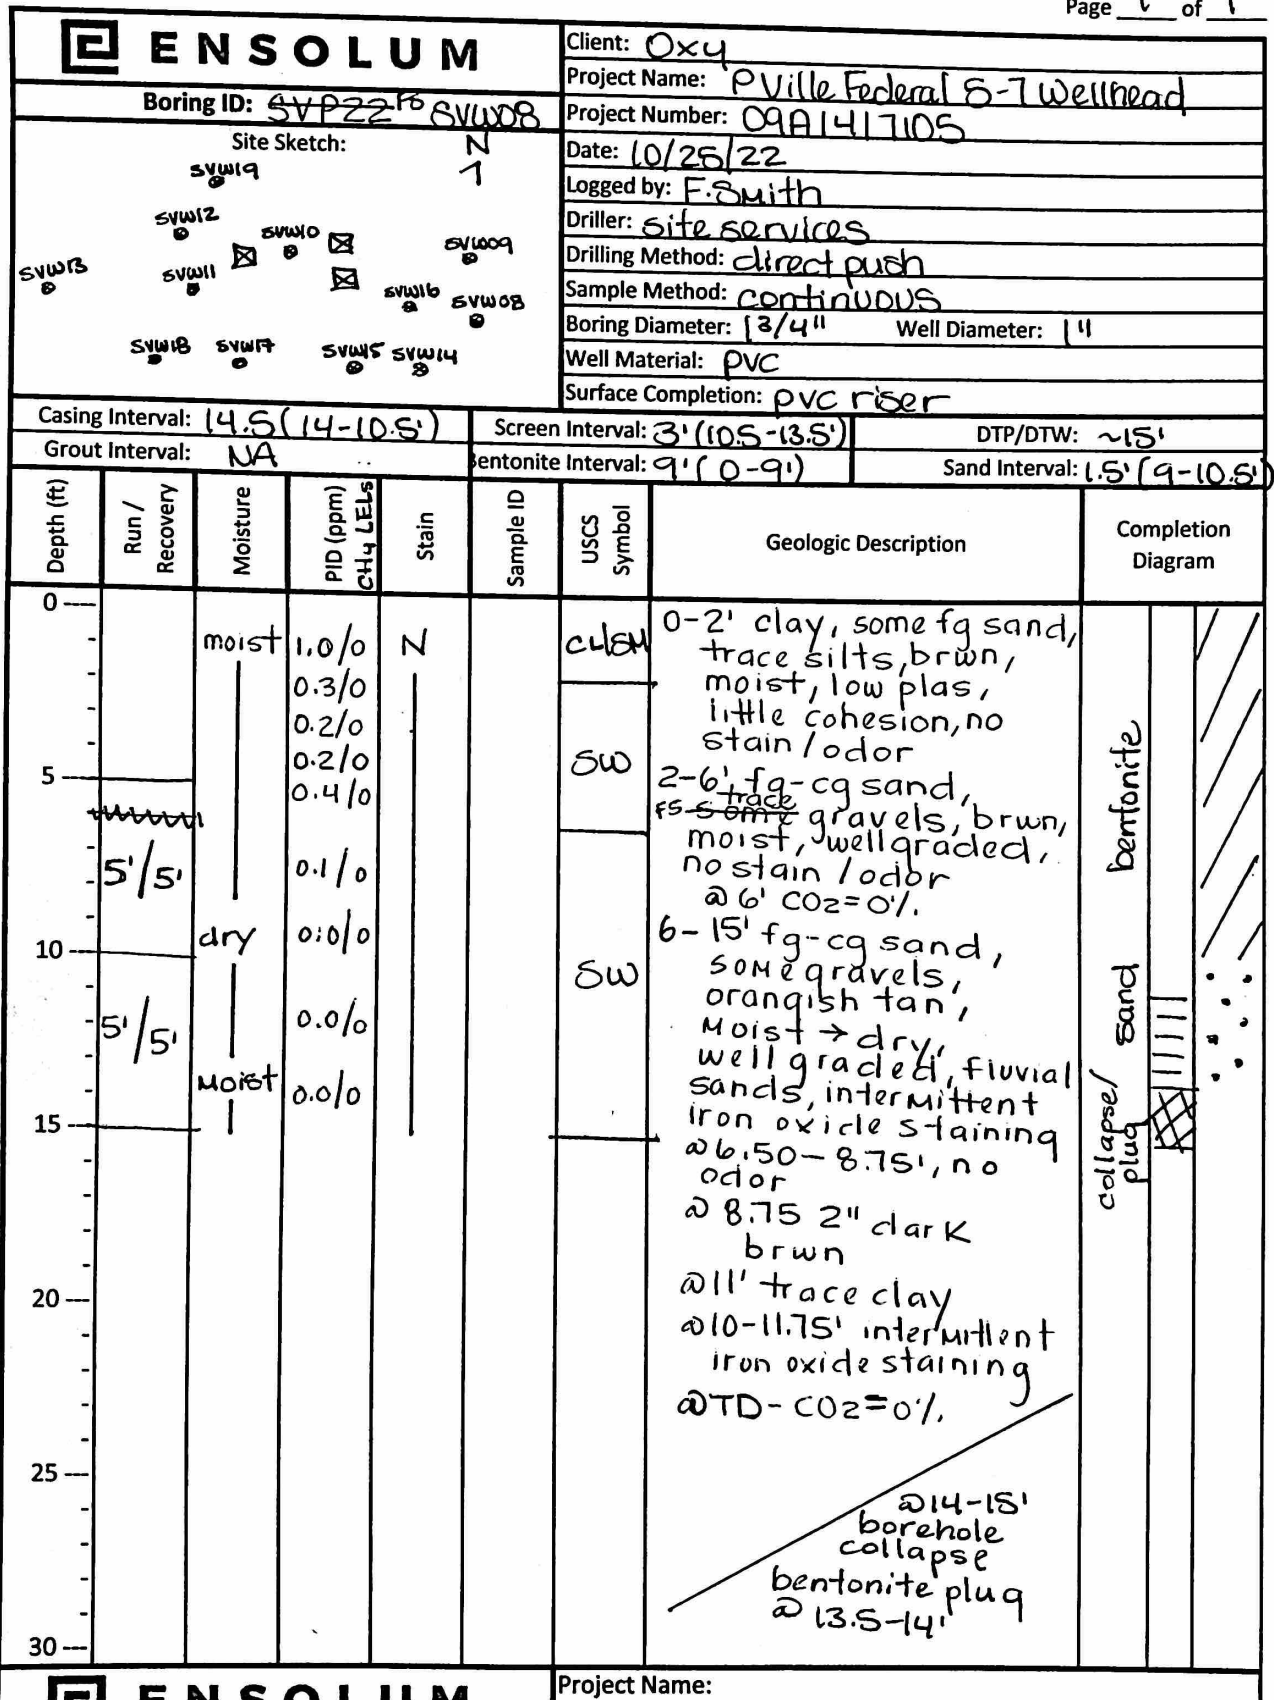 Page 1 of 1
ENSOLUM
Boring ID: SVP22 FS SVW08
Client: Oxy
Project Name: PVille Federal S-7 Wellhead
Project Number: 09A1417105
Date: 10/25/22
Logged by: F.Smith
Driller: site services
Drilling Method: direct push
Sample Method: continuous
Boring Diameter: 1 3/4" Well Diameter: 1"
Well Material: PVC
Surface Completion: pvc riser
Site Sketch: N
SVW19
SVW12
SVW10
SVW09
SVW13
SVW11
SVW16
SVW08
SVW18
SVW17
SVW15
SVW14
Casing Interval: 14.5 (14-10.5')
Screen Interval: 3' (10.5-13.5')
DTP/DTW: ~15'
Grout Interval: NA
Bentonite Interval: 9' (0-9')
Sand Interval: 1.5' (9-10.5')
Depth (ft)
Run / Recovery
Moisture
PID (ppm) CH4 LELs
Stain
Sample ID
USCS Symbol
Geologic Description
Completion Diagram
0
5
10
15
20
25
30
5'/5'
5'/5'
moist
dry
moist
1.0/0
0.3/0
0.2/0
0.2/0
0.4/0
0.1/0
0.0/0
0.0/0
0.0/0
N
CL/SM
SW
SW
0-2' clay, some fg sand,
trace silts, brwn,
moist, low plas,
little cohesion, no
stain/odor
2-6' fg-cg sand,
trace
FS some gravels, brwn,
moist, well graded,
no stain/odor
@ 6' CO2=0%
6-15' fg-cg sand,
some gravels,
orangish tan,
moist → dry,
well graded, fluvial
sands, intermittent
iron oxide staining
@ 6.50-8.75', no
odor
@ 8.75 2" dark
brwn
@ 11' trace clay
@ 10-11.75' intermittent
iron oxide staining
@ TD - CO2=0%
@ 14-15'
borehole
collapse
bentonite plug
@ 13.5-14'
bentonite
sand
collapse/
plug
ENSOLUM
Project Name: